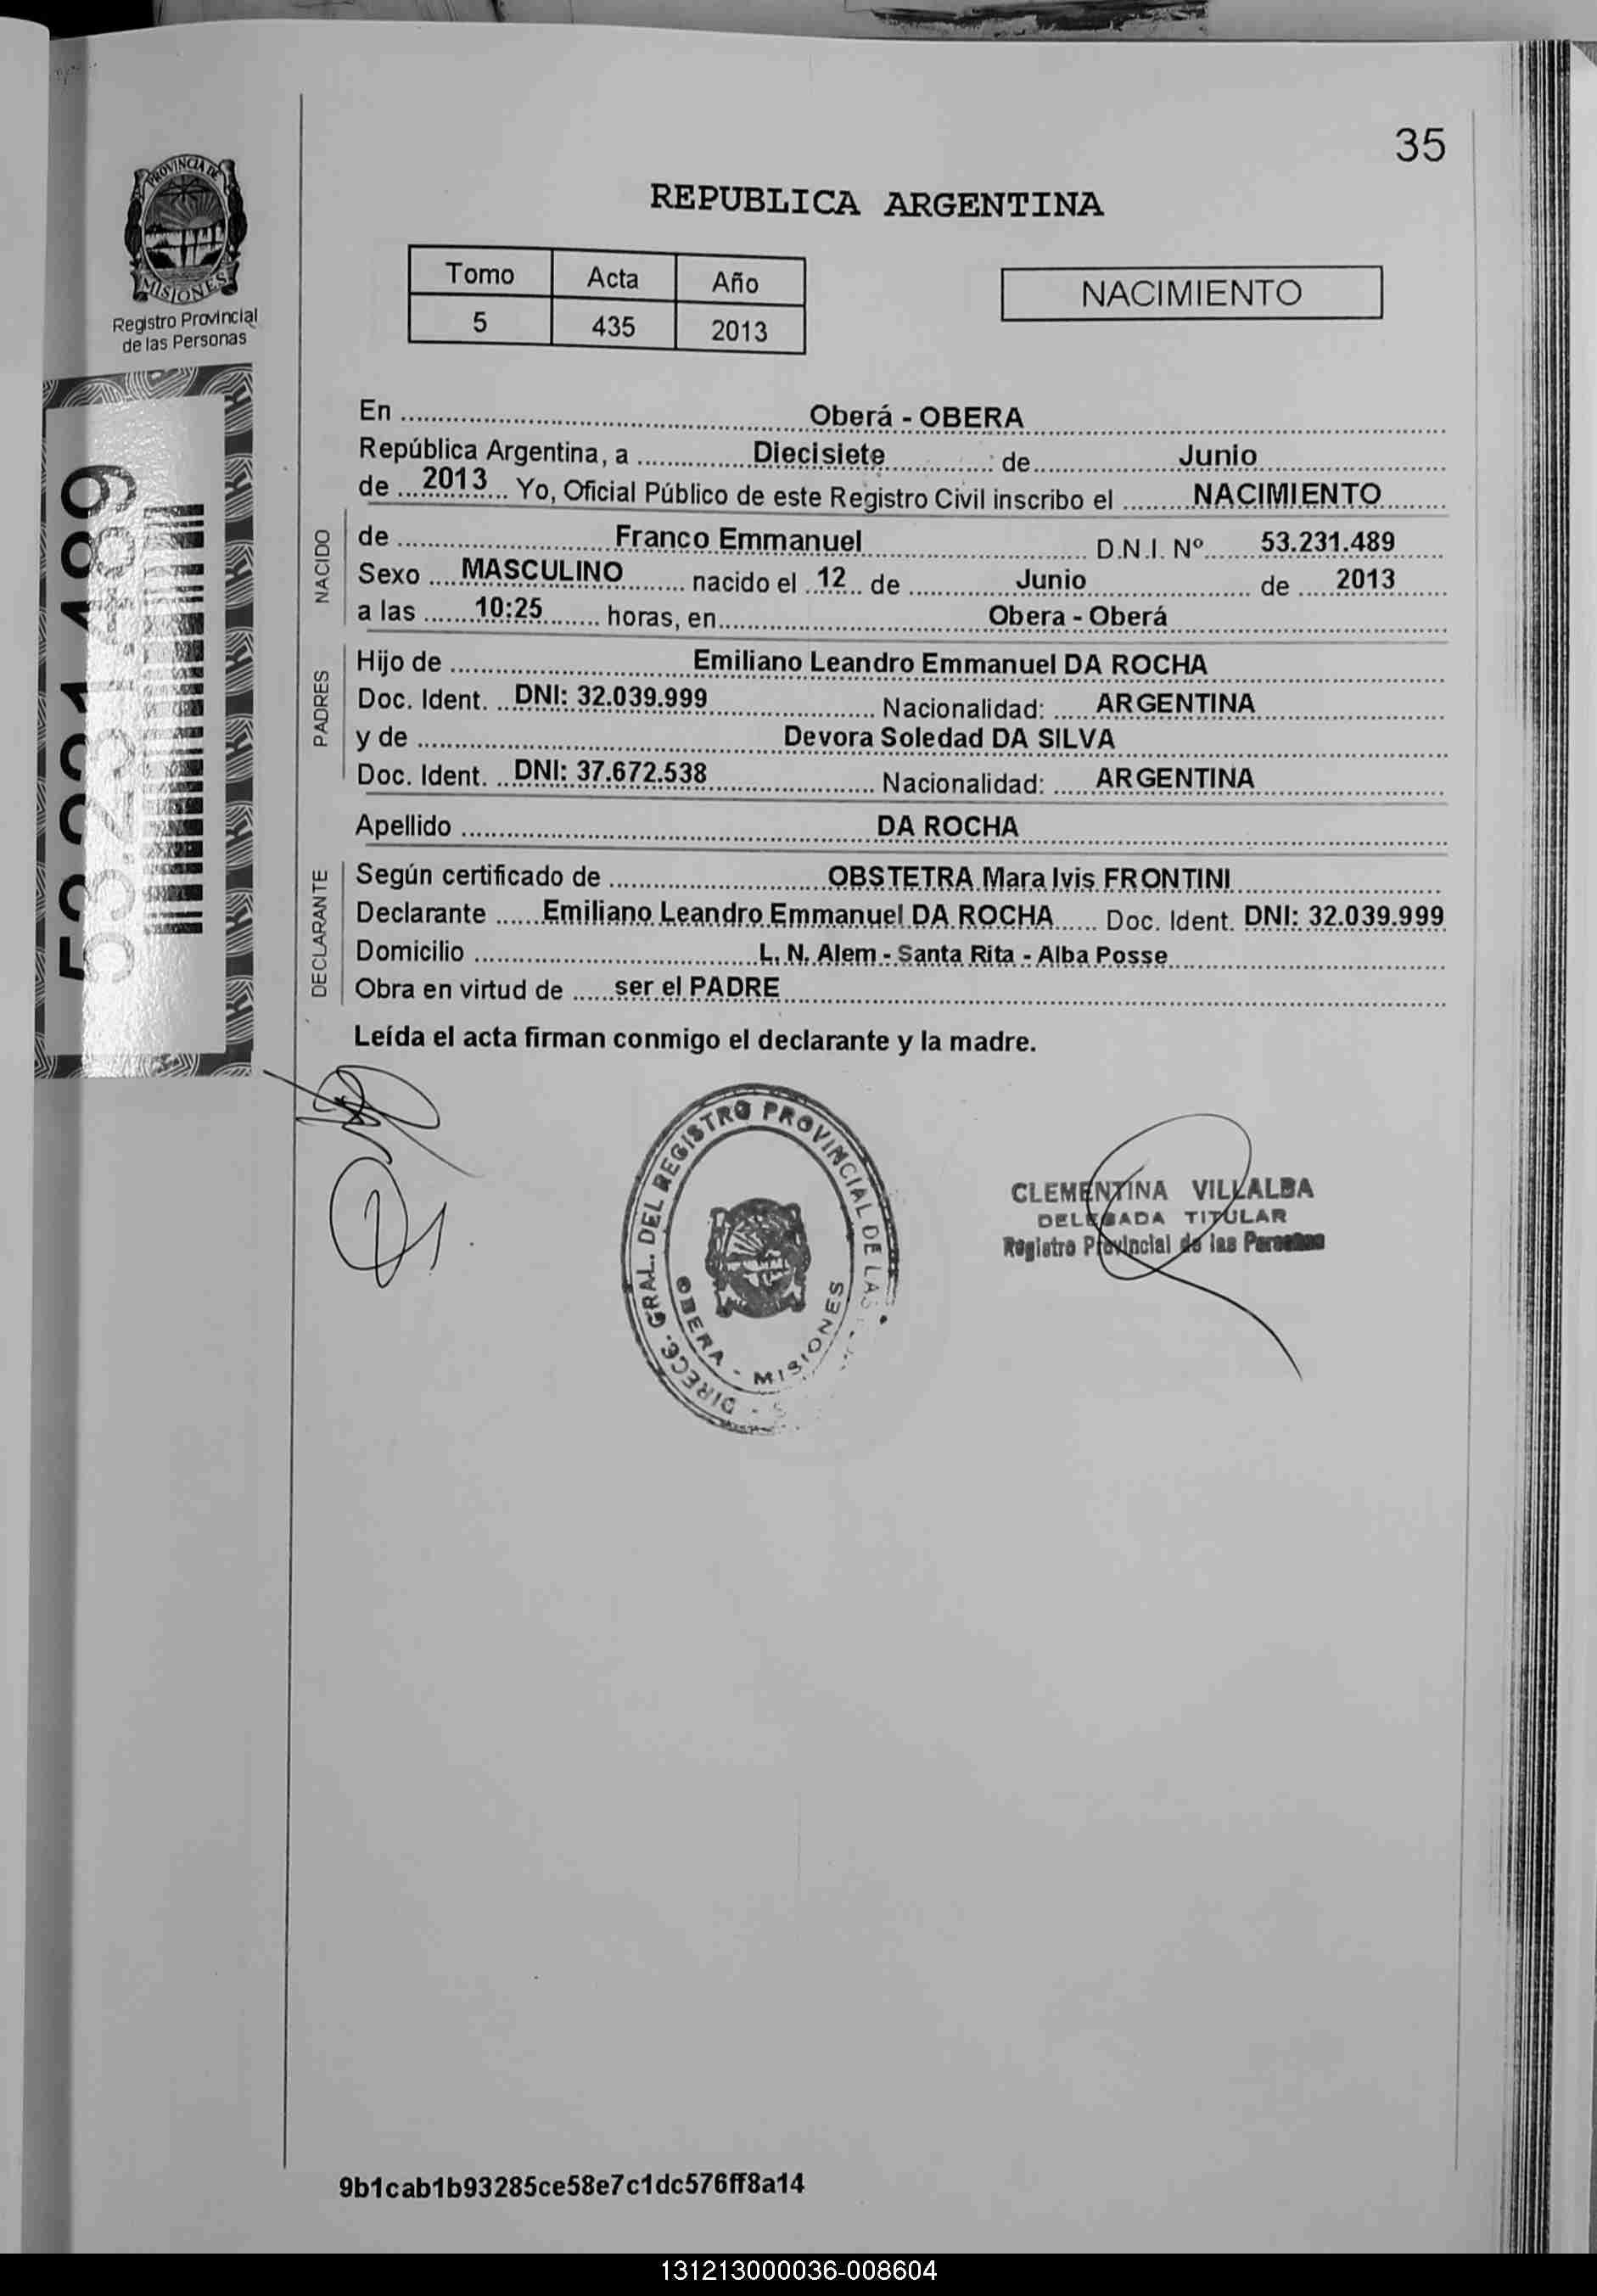 35
PROVINCIA DE
MISIONES
Registro Provincial
de las Personas
53.231.489
REPUBLICA ARGENTINA
Tomo Acta Año
5 435 2013
NACIMIENTO
En Oberá - OBERA
República Argentina, a Diecisiete de Junio
de 2013 Yo, Oficial Público de este Registro Civil inscribo el NACIMIENTO
NACIDO
de Franco Emmanuel D.N.I. Nº 53.231.489
Sexo MASCULINO nacido el 12 de Junio de 2013
a las 10:25 horas, en Obera - Oberá
PADRES
Hijo de Emiliano Leandro Emmanuel DA ROCHA
Doc. Ident. DNI: 32.039.999 Nacionalidad: ARGENTINA
y de Devora Soledad DA SILVA
Doc. Ident. DNI: 37.672.538 Nacionalidad: ARGENTINA
Apellido DA ROCHA
DECLARANTE
Según certificado de OBSTETRA Mara Ivis FRONTINI
Declarante Emiliano Leandro Emmanuel DA ROCHA Doc. Ident. DNI: 32.039.999
Domicilio L. N. Alem - Santa Rita - Alba Posse
Obra en virtud de ser el PADRE
Leída el acta firman conmigo el declarante y la madre.
DIRECC. GRAL. DEL REGISTRO PROVINCIAL DE LAS
OBERA - MISIONES
CLEMENTINA VILLALBA
DELEGADA TITULAR
Registro Provincial de las Personas
9b1cab1b93285ce58e7c1dc576ff8a14
131213000036-008604